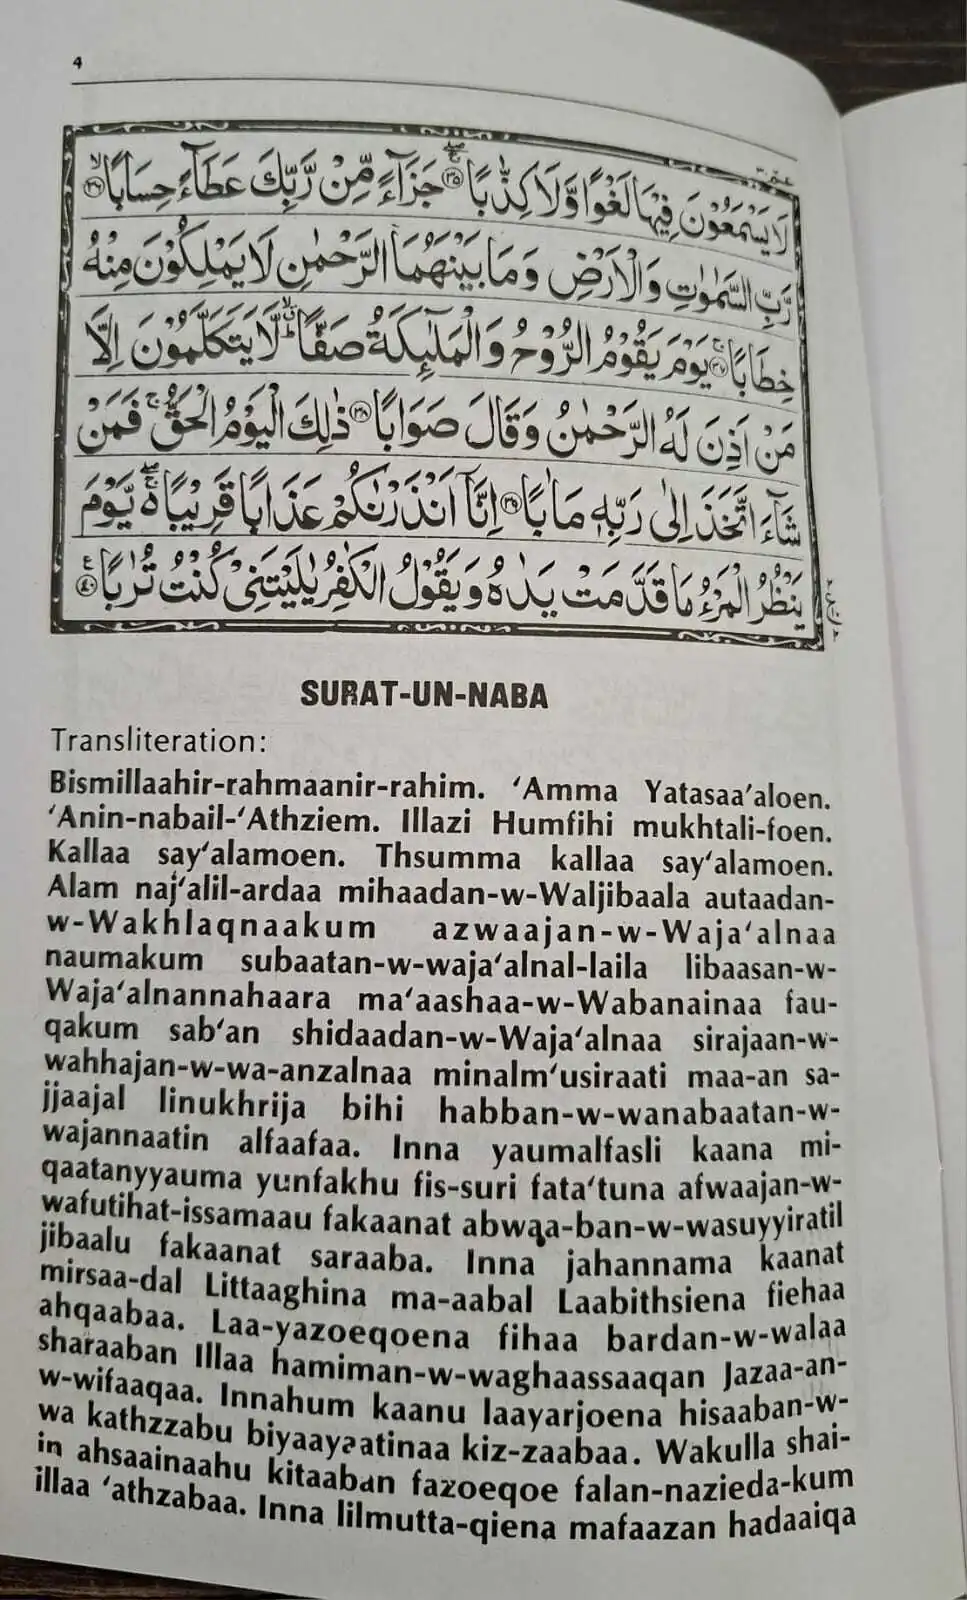 4
لَا يَسْمَعُوْنَ فِيْهَا لَغْوًا وَّلَا كِذّٰبًا ﴿٣٥﴾ جَزَآءً مِّنْ رَّبِّكَ عَطَآءً حِسَابًا ﴿٣٦﴾
رَّبِّ السَّمٰوٰتِ وَالْاَرْضِ وَمَا بَيْنَهُمَا الرَّحْمٰنِ لَا يَمْلِكُوْنَ مِنْهُ
خِطَابًا ﴿٣٧﴾ يَوْمَ يَقُوْمُ الرُّوْحُ وَالْمَلٰٓئِكَةُ صَفًّا لَّا يَتَكَلَّمُوْنَ اِلَّا
مَنْ اَذِنَ لَهُ الرَّحْمٰنُ وَقَالَ صَوَابًا ﴿٣٨﴾ ذٰلِكَ الْيَوْمُ الْحَقُّ ۚ فَمَنْ
شَآءَ اتَّخَذَ اِلٰى رَبِّهٖ مَاٰبًا ﴿٣٩﴾ اِنَّآ اَنْذَرْنٰكُمْ عَذَابًا قَرِيْبًا ۖ يَّوْمَ
يَنْظُرُ الْمَرْءُ مَا قَدَّمَتْ يَدٰهُ وَيَقُوْلُ الْكٰفِرُ يٰلَيْتَنِيْ كُنْتُ تُرٰبًا ﴿٤٠﴾
SURAT-UN-NABA
Transliteration:
Bismillaahir-rahmaanir-rahim. ‘Amma Yatasaa’aloen.
‘Anin-nabail-‘Athziem. Illazi Humfihi mukhtali-foen.
Kallaa say‘alamoen. Thsumma kallaa say‘alamoen.
Alam naj‘alil-ardaa mihaadan-w-Waljibaala autaadan-
w-Wakhlaqnaakum azwaajan-w-Waja‘alnaa
naumakum subaatan-w-waja‘alnal-laila libaasan-w-
Waja‘alnannahaara ma‘aashaa-w-Wabanainaa fau-
qakum sab‘an shidaadan-w-Waja‘alnaa sirajaan-w-
wahhajan-w-wa-anzalnaa minalm‘usiraati maa-an sa-
jjaajal linukhrija bihi habban-w-wanabaatan-w-
wajannaatin alfaafaa. Inna yaumalfasli kaana mi-
qaatanyyauma yunfakhu fis-suri fata‘tuna afwaajan-w-
wafutihat-issamaau fakaanat abwaa-ban-w-wasuyyiratil
jibaalu fakaanat saraaba. Inna jahannama kaanat
mirsaa-dal Littaaghina ma-aabal Laabithsiena fiehaa
ahqaabaa. Laa-yazoeqoena fihaa bardan-w-walaa
sharaaban Illaa hamiman-w-waghaassaaqan Jazaa-an-
w-wifaaqaa. Innahum kaanu laayarjoena hisaaban-w-
wa kathzzabu biyaayaatinaa kiz-zaabaa. Wakulla shai-
in ahsaainaahu kitaaban fazoeqoe falan-nazieda-kum
illaa ‘athzabaa. Inna lilmutta-qiena mafaazan hadaaiqa